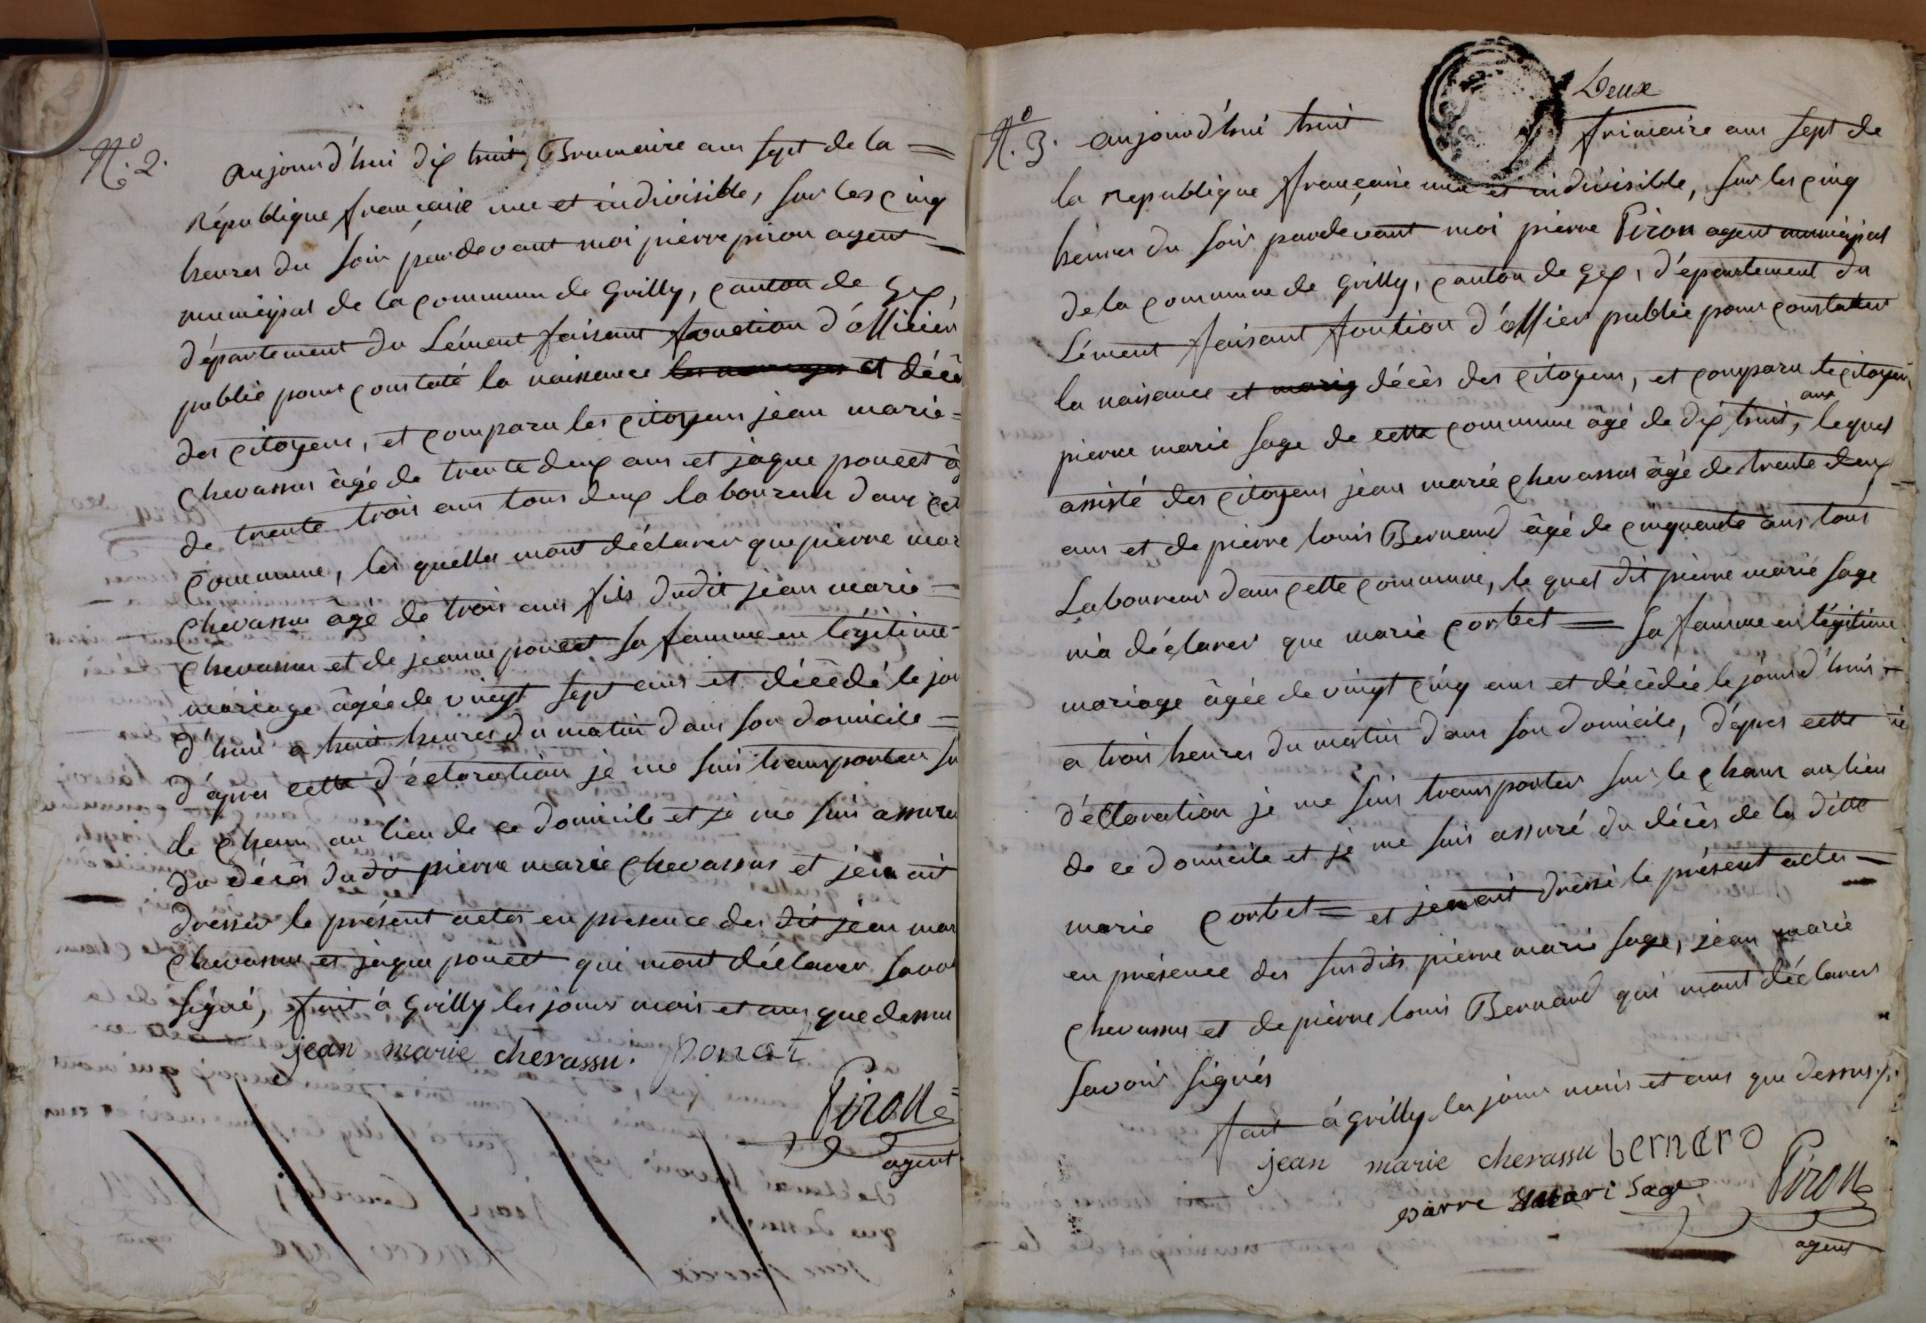 N.º 2.
Aujourd'hui dix huit Brumaire ans sept de la =
République française une et indivisible, sur les cinq
heures du soir pardevant moi pierre piron agent =
municipal de la commune de Grilly, canton de Gex,
d'épartement du Lément faisant fonction d'officier
public pour constaté la naissance et décè
des citoyens, et comparu les citoyens jean marie =
Chevassus âgé de trente deux ans et jaque poncet â
de trente trois ans tous deux laboureur dans cet
Commune, les quelles mont déclarer que pierre mar
Chevassus âgé de trois ans fils dudit jean marie =
Chevassus et de jeanne poncet sa famme en légitime
mariage âgée de vingt sept ans et décêdé le jou
d'huit a huit heures du matin dans son domicile =
d'âpres cette d'éclaration je me suis transporter su
le Cham au lieu de ce domicile et je me suis assure
du décès dudit pierre marie Chevassus et j'en ait
dresser le présent actes en presence des dit jean mar
Chevassus et jaque poncet qui mont déclarer savoi
signé, fait à Grilly les jours mois et ans que dessus
jean marie chevassu. poncet
Piron
agent
Deux
N.º 3. aujourd'hui huit frimaire ans sept de
la republique française une et indivisible, sur les cinq
heures du soir pardevant moi pierre Piron agent municipal
de la commune de Grilly, canton de Gex, d'épartement du
Lément faisant fontion d'officier public pour constater
la naisance et décès des citoyens, et comparu le citoyen
pierre marie sage de cette commune âgé de dix huit ans, lequel
assisté des citoyens jean marie chevassus âgé de trente deux =
ans et de pierre louis Bernard âgé de cinquante ans tous
Laboureur dans cette commune, le quel dit pierre marie sage
m'a déclarer que marie corbet = sa famme en légitime
mariage âgée de vingt cinq ans et décêdée le jourd'huis
a trois heures du matin dans son domicile, d'âpres cette
d'éclaration je me suis transporter sur le cham au lieu
de ce domicile et je me suis assuré du décès de la ditte
marie Corbet = et j'en ait dressé le présent actes =
en présence des susdits pierre marie sage, jean marie
Chevassus et de pierre louis Bernard qui mont déclarer
savoir signés
fait à Grilly les jour mois et ans que dessus /.
jean marie chevassu bernaro
piarre mari Sage Piron
agent